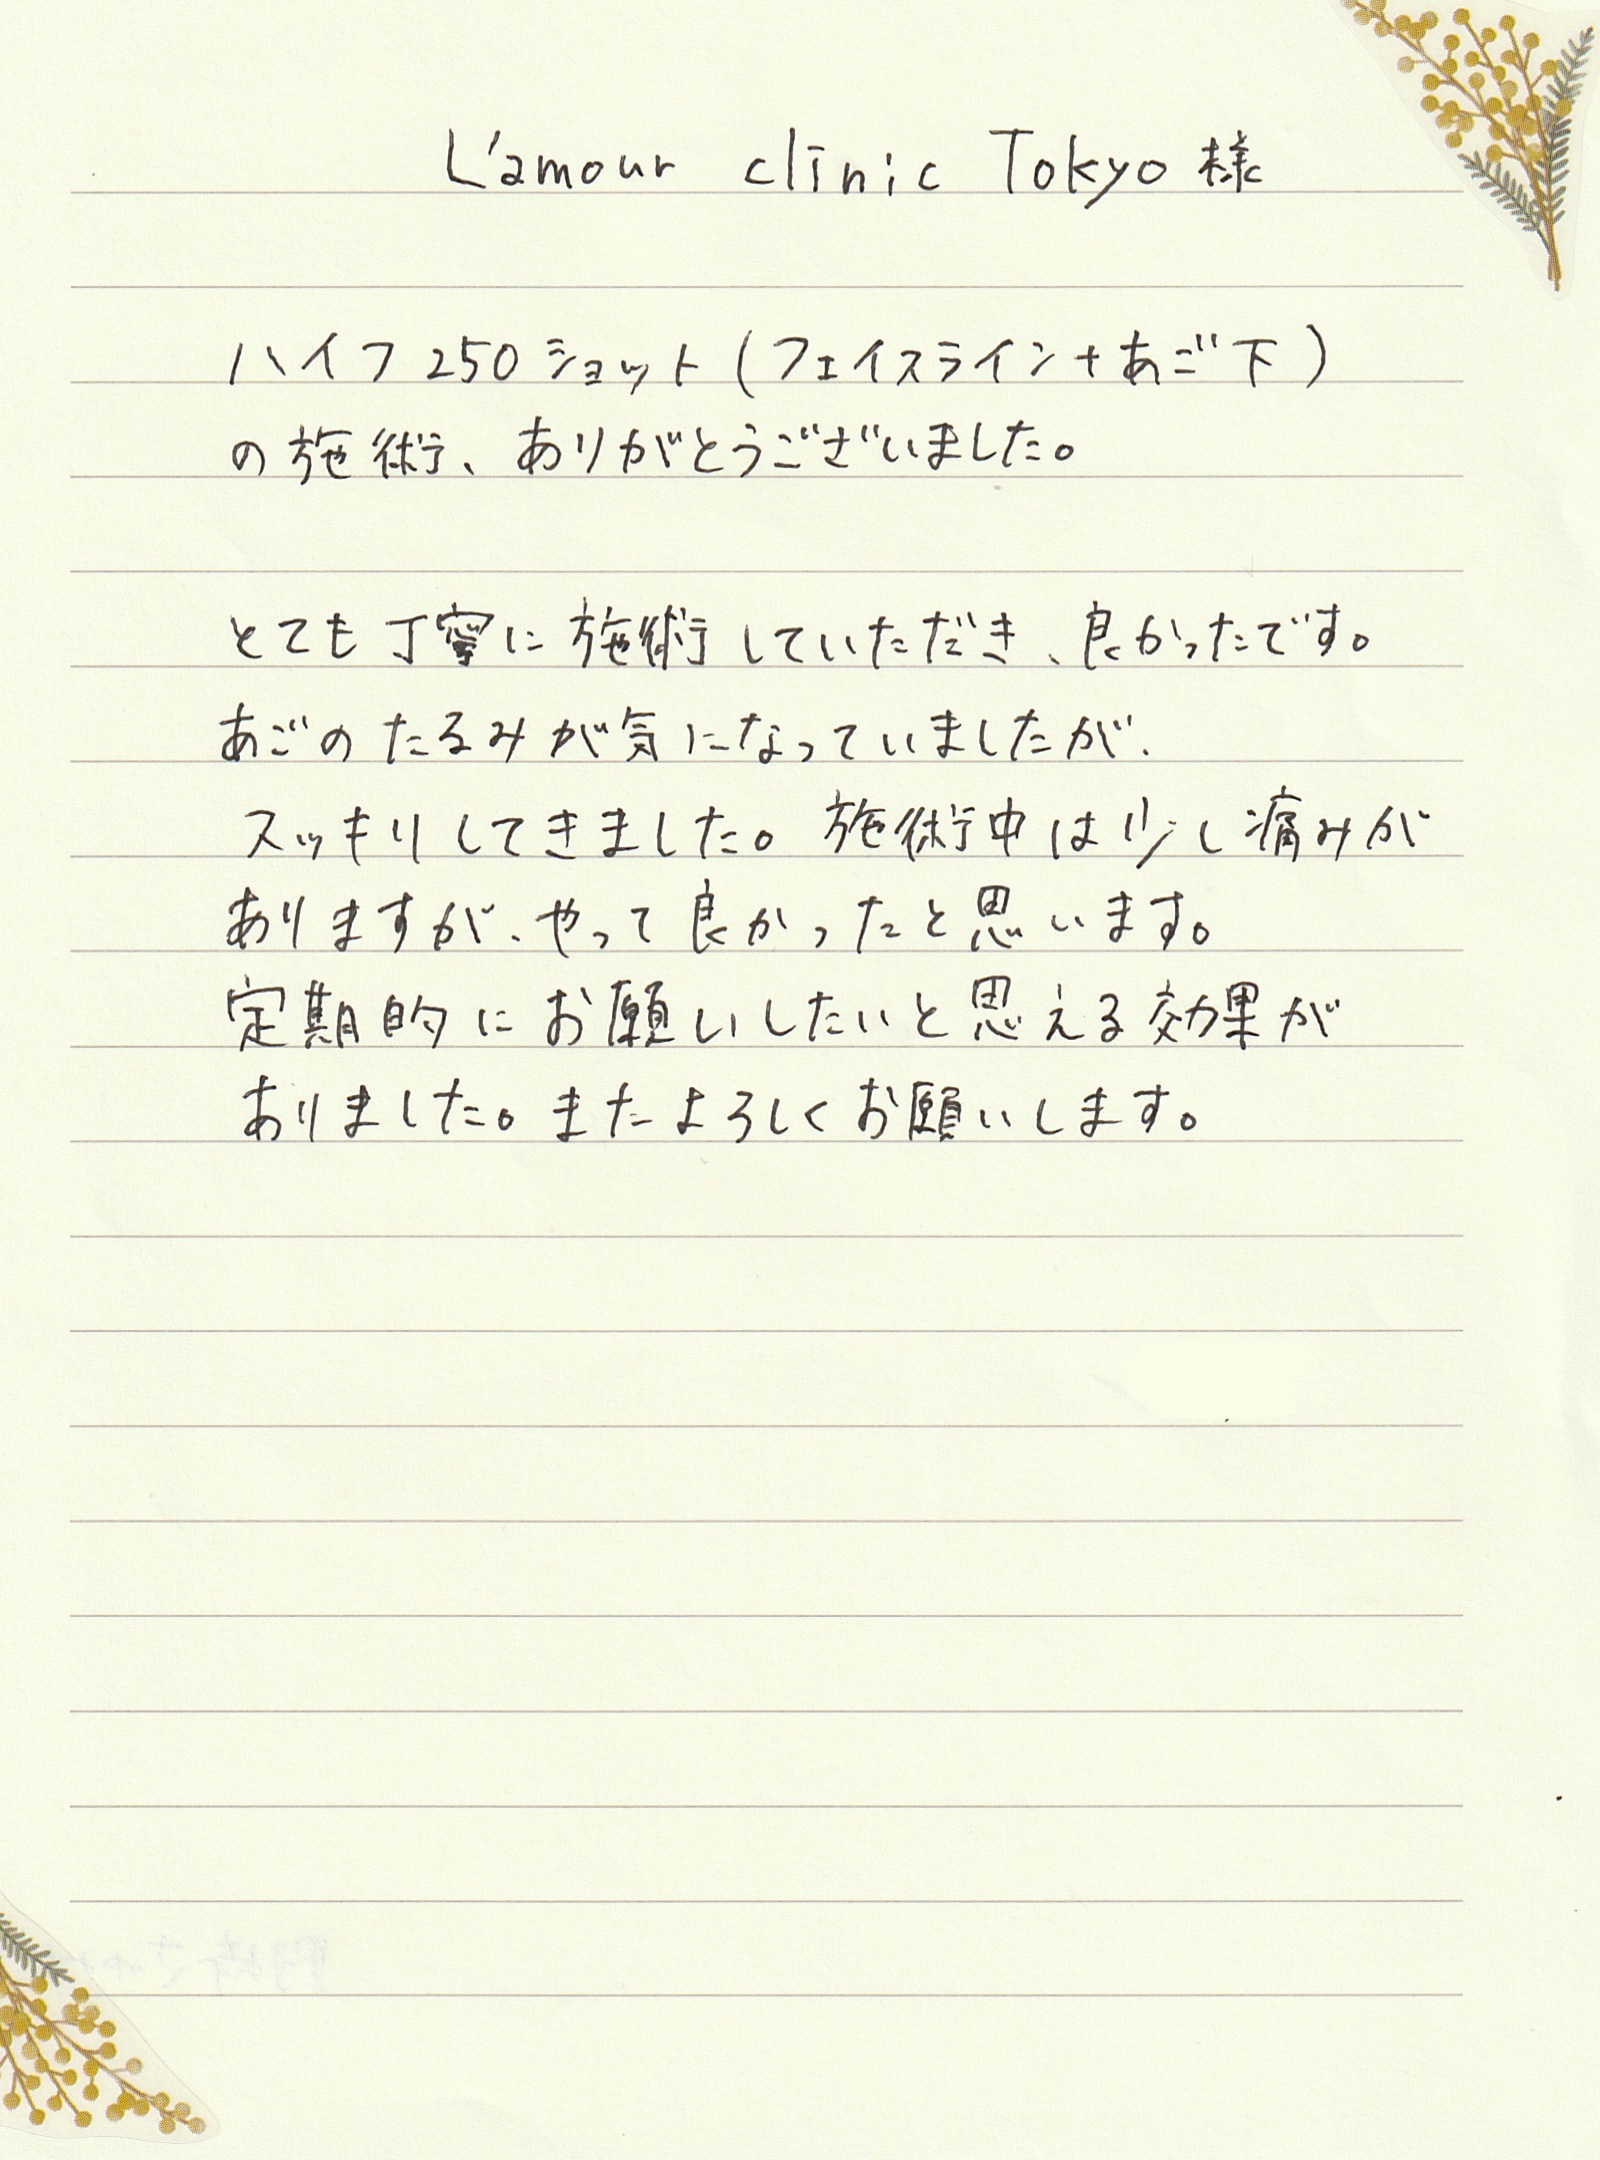 L'amour clinic Tokyo 様
ハイフ250ショット(フェイスライン+あご下)
の施術、ありがとうございました。
とても丁寧に施術していただき、良かったです。
あごのたるみが気になっていましたが、
スッキリしてきました。施術中は少し痛みが
ありますが、やって良かったと思います。
定期的にお願いしたいと思える効果が
ありました。またよろしくお願いします。